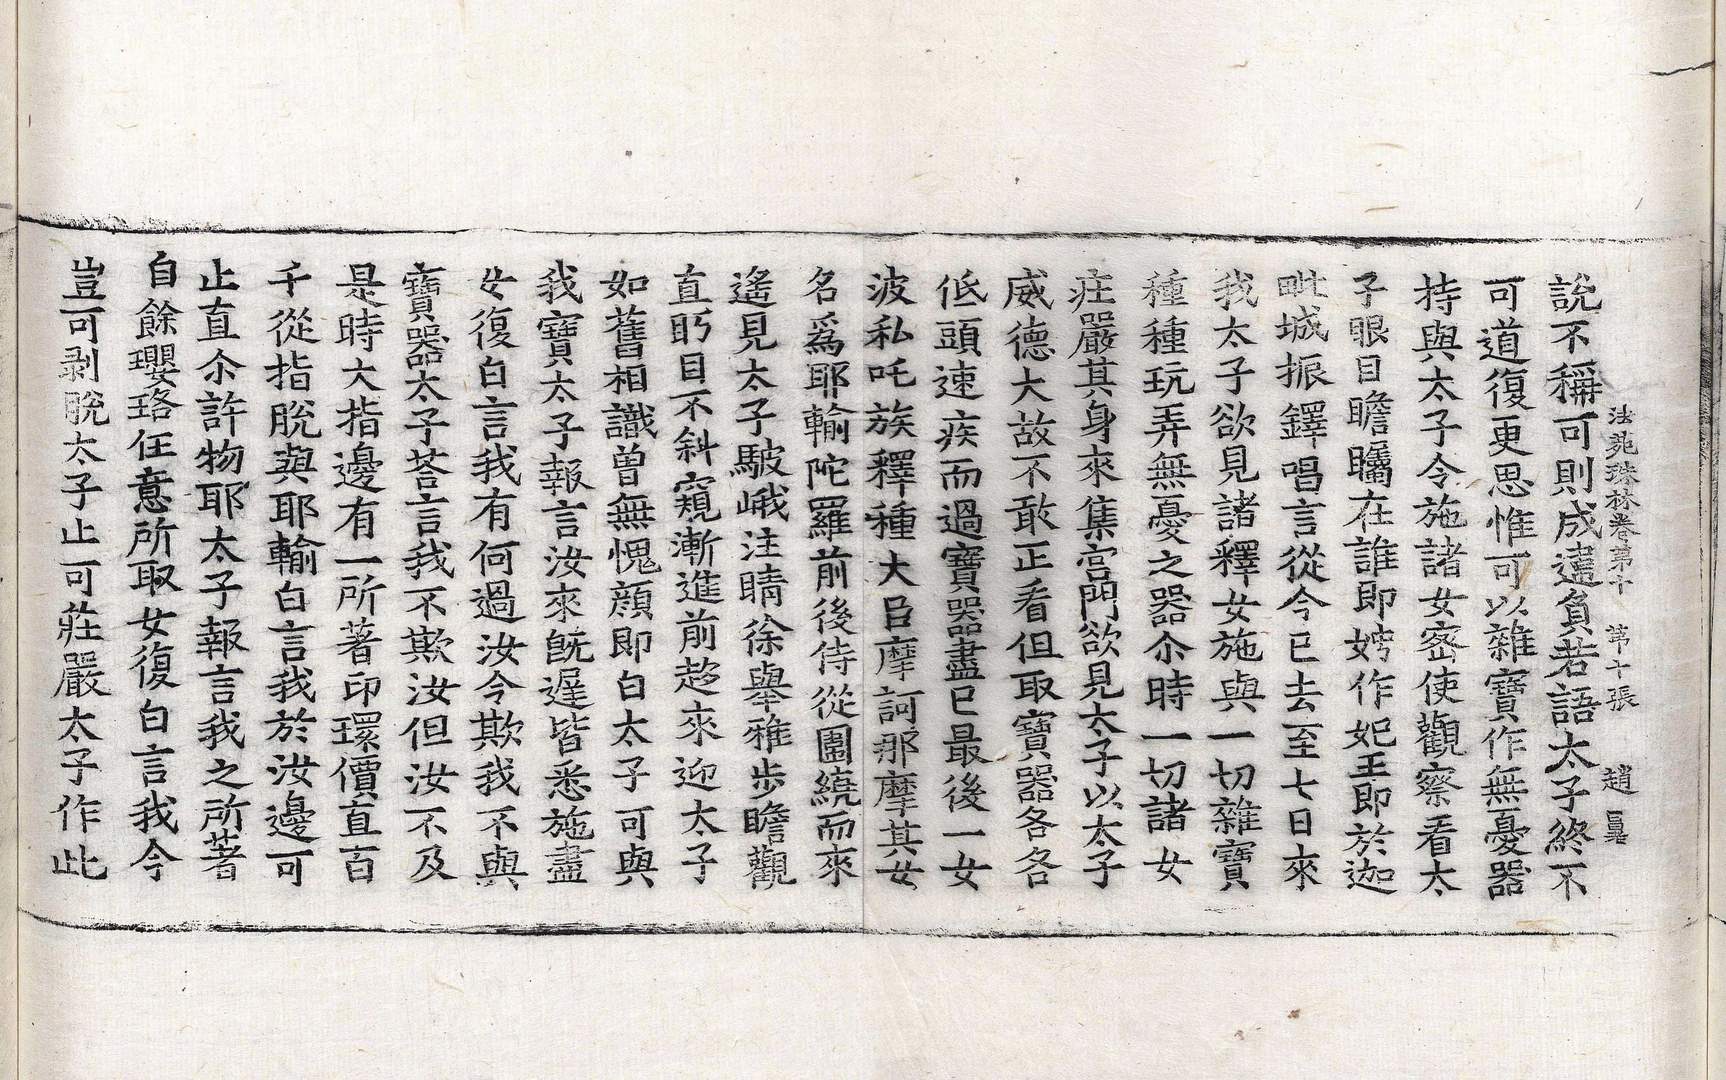 法苑珠林卷第十 第十張 趙
說不稱可則成違負若語太子終不
可道復更思惟可以雜寶作無憂器
持與太子令施諸女密使觀察看太
子眼目瞻矚在誰即娉作妃王即於迦
毗城振鐸唱言從今已去至七日來
我太子欲見諸釋女施與一切雜寶
種種玩弄無憂之器尒時一切諸女
莊嚴其身來集宮門欲見太子以太子
威德大故不敢正看但取寶器各各
低頭速疾而過寶器盡已最後一女
波私吒族釋種大臣摩訶那摩其女
名爲耶輸陀羅前後侍從圍繞而來
遙見太子駊峨注睛徐舉雅步瞻觀
直䀏目不斜窺漸進前趍來迎太子
如舊相識曾無愧顔即白太子可與
我寶太子報言汝來旣遲皆悉施盡
女復白言我有何過汝今欺我不與
寶器太子荅言我不欺汝但汝不及
是時大指邊有一所著印環價直百
千從指脫與耶輸白言我於汝邊可
止直尒許物耶太子報言我之所著
自餘瓔珞任意所取女復白言我今
豈可剥脫太子止可莊嚴太子作此